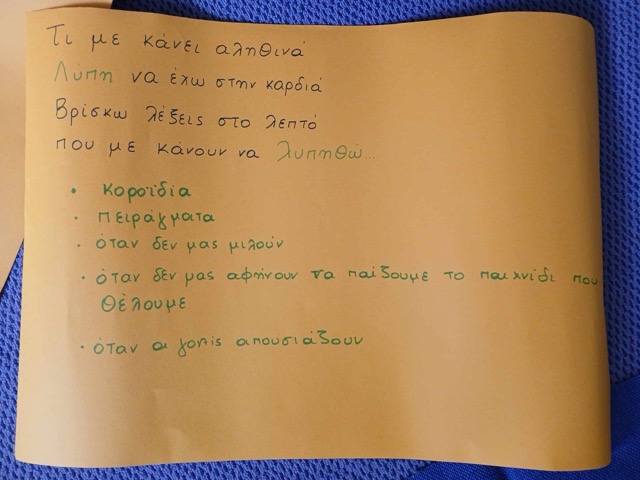 Τι με κάνει αληθινά
Λύπη να έχω στην καρδιά
Βρίσκω λέξεις στο λεπτό
που με κάνουν να λυπηθώ...
• κοροϊδία
• πειράγματα
• όταν δεν μας μιλούν
• όταν δεν μας αφήνουν να παίξουμε το παιχνίδι που
θέλουμε
• όταν οι γονείς απουσιάζουν